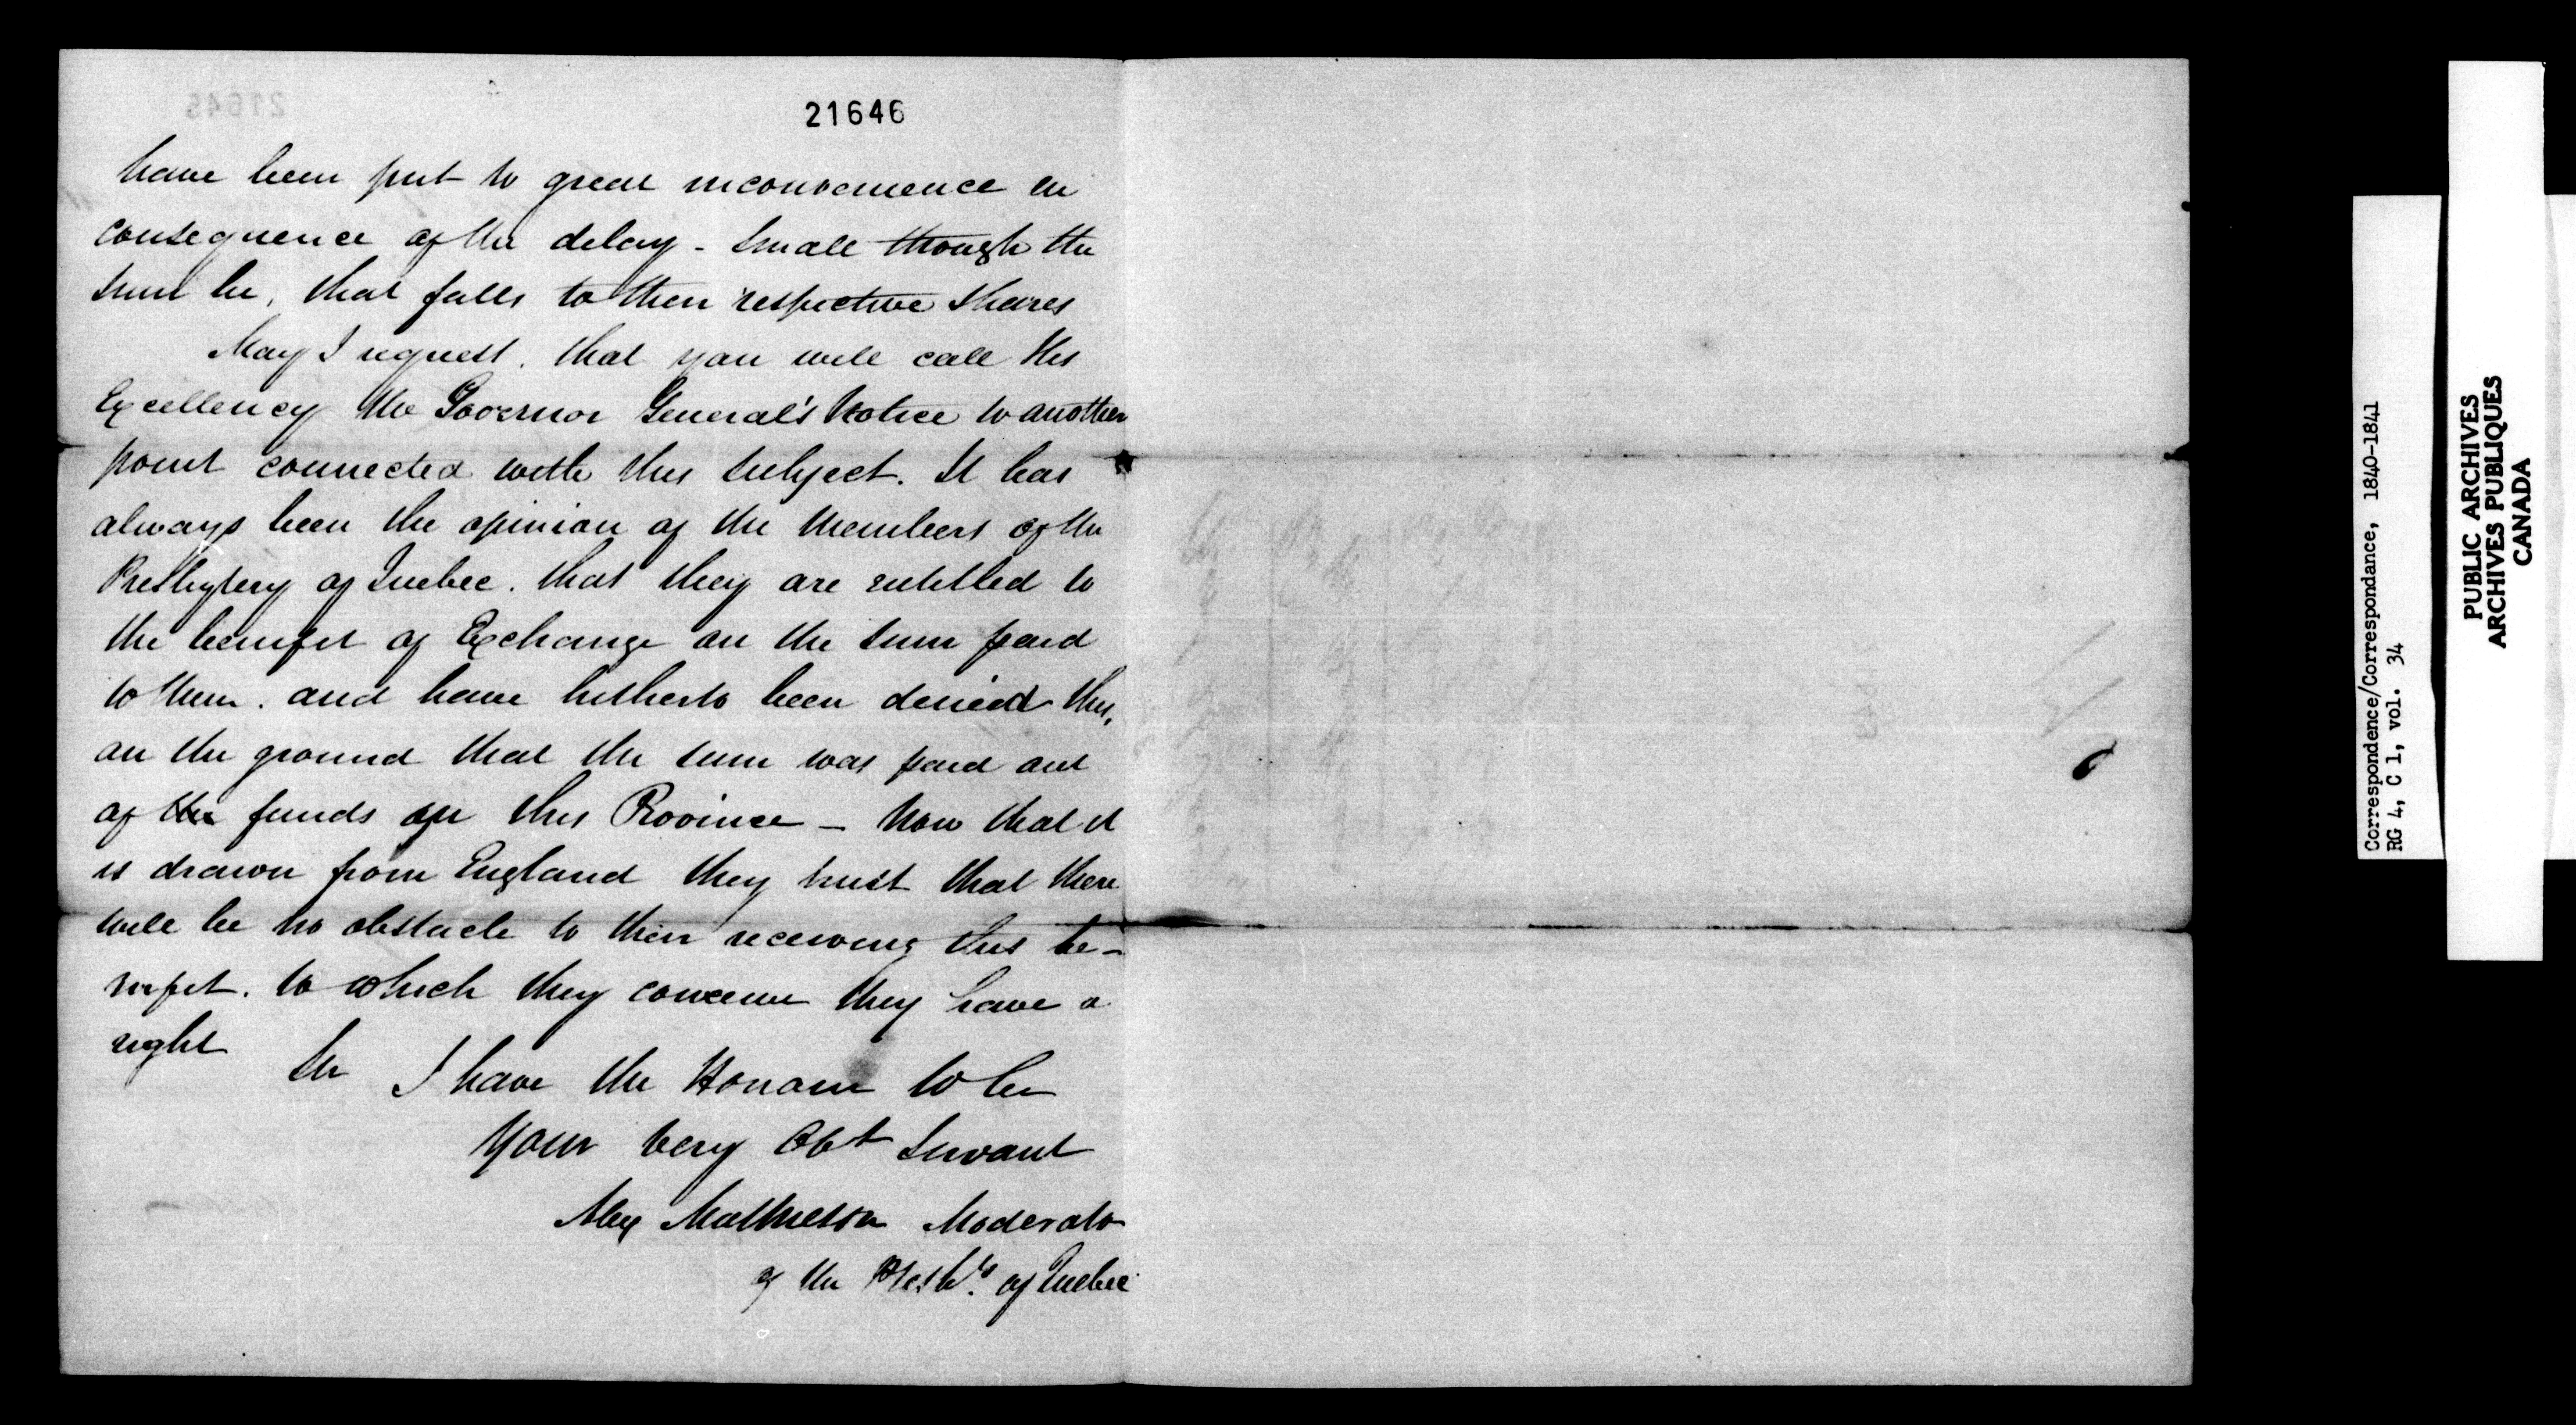 21646
have been put to great inconvenience in
consequence of the delay - small though the
sum be, that falls to their respective shares
May I request. that you will call His
Excellency the Governor General's notice to another
point connected with this subject. It has
always been the opinion of the members of the
Presbytery of Quebec. that they are entitled to
the benefit of Exchange on the sum paid
to them. and have hitherto been denied this,
on the ground that the sum was paid out
of the funds of this Province - Now that it
is drawn from England they trust that there
will be no obstacle to their receiving this be-
nefit. to which they conceive they have a
right
Sir I have the Honour to be
Your very Obt Servant
Alex Mathieson Moderator
of the Presby. of Quebec
21645
Correspondence/Correspondance, 1840-1841
RG 4, C 1, vol. 34
PUBLIC ARCHIVES
ARCHIVES PUBLIQUES
CANADA